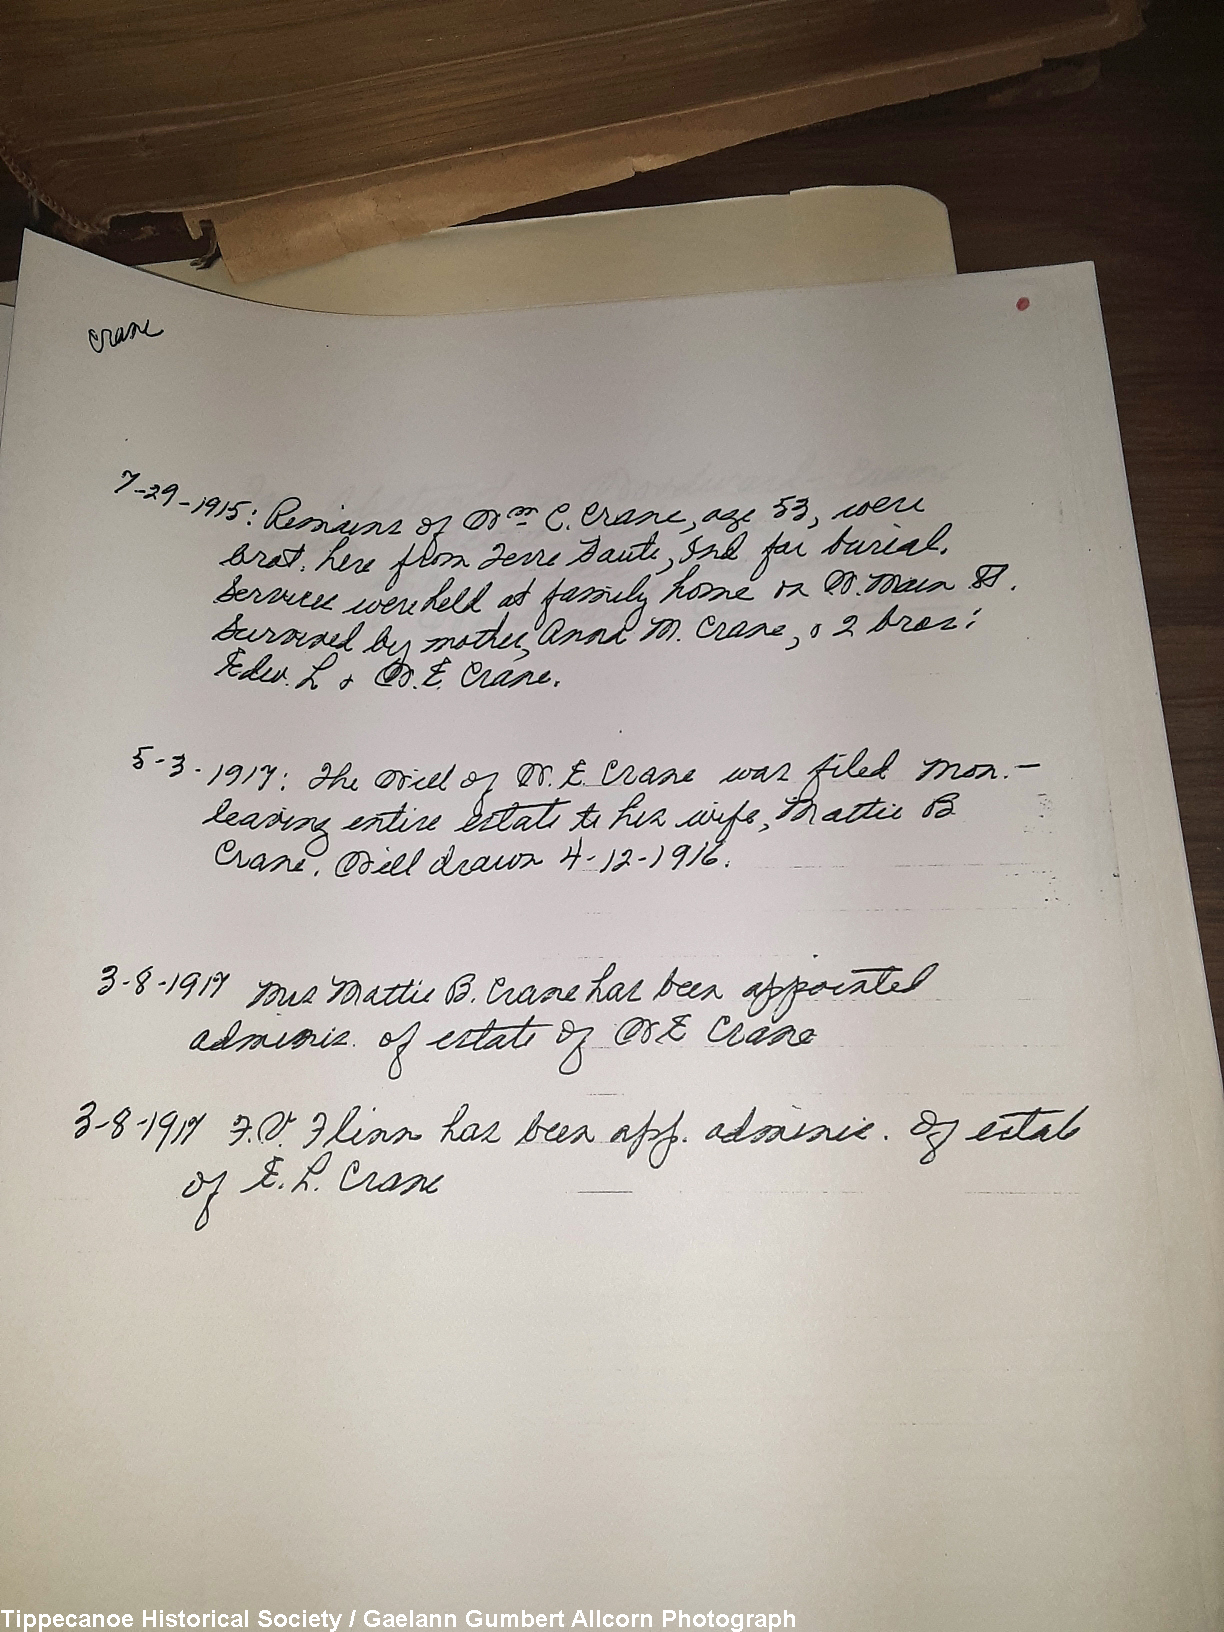 Crane
7-29-1915: Remains of Wm C. Crane, age 53, were
brot. here from Terre Haute, Ind for burial.
Services were held at family home on W. Main St.
Survived by mother, Anna M. Crane, & 2 bros:
Edw. L & W. E. Crane.
5-3-1917: The Will of W. E. Crane was filed Mon. -
leaving entire estate to his wife, Mattie B
Crane. Will drawn 4-12-1916.
3-8-1917 Mrs Mattie B. Crane has been appointed
adminis. of estate of W E Crane
3-8-1917 F. V. Flinn has been app. adminis. of estate
of E. L. Crane
Tippecanoe Historical Society / Gaelann Gumbert Allcorn Photograph